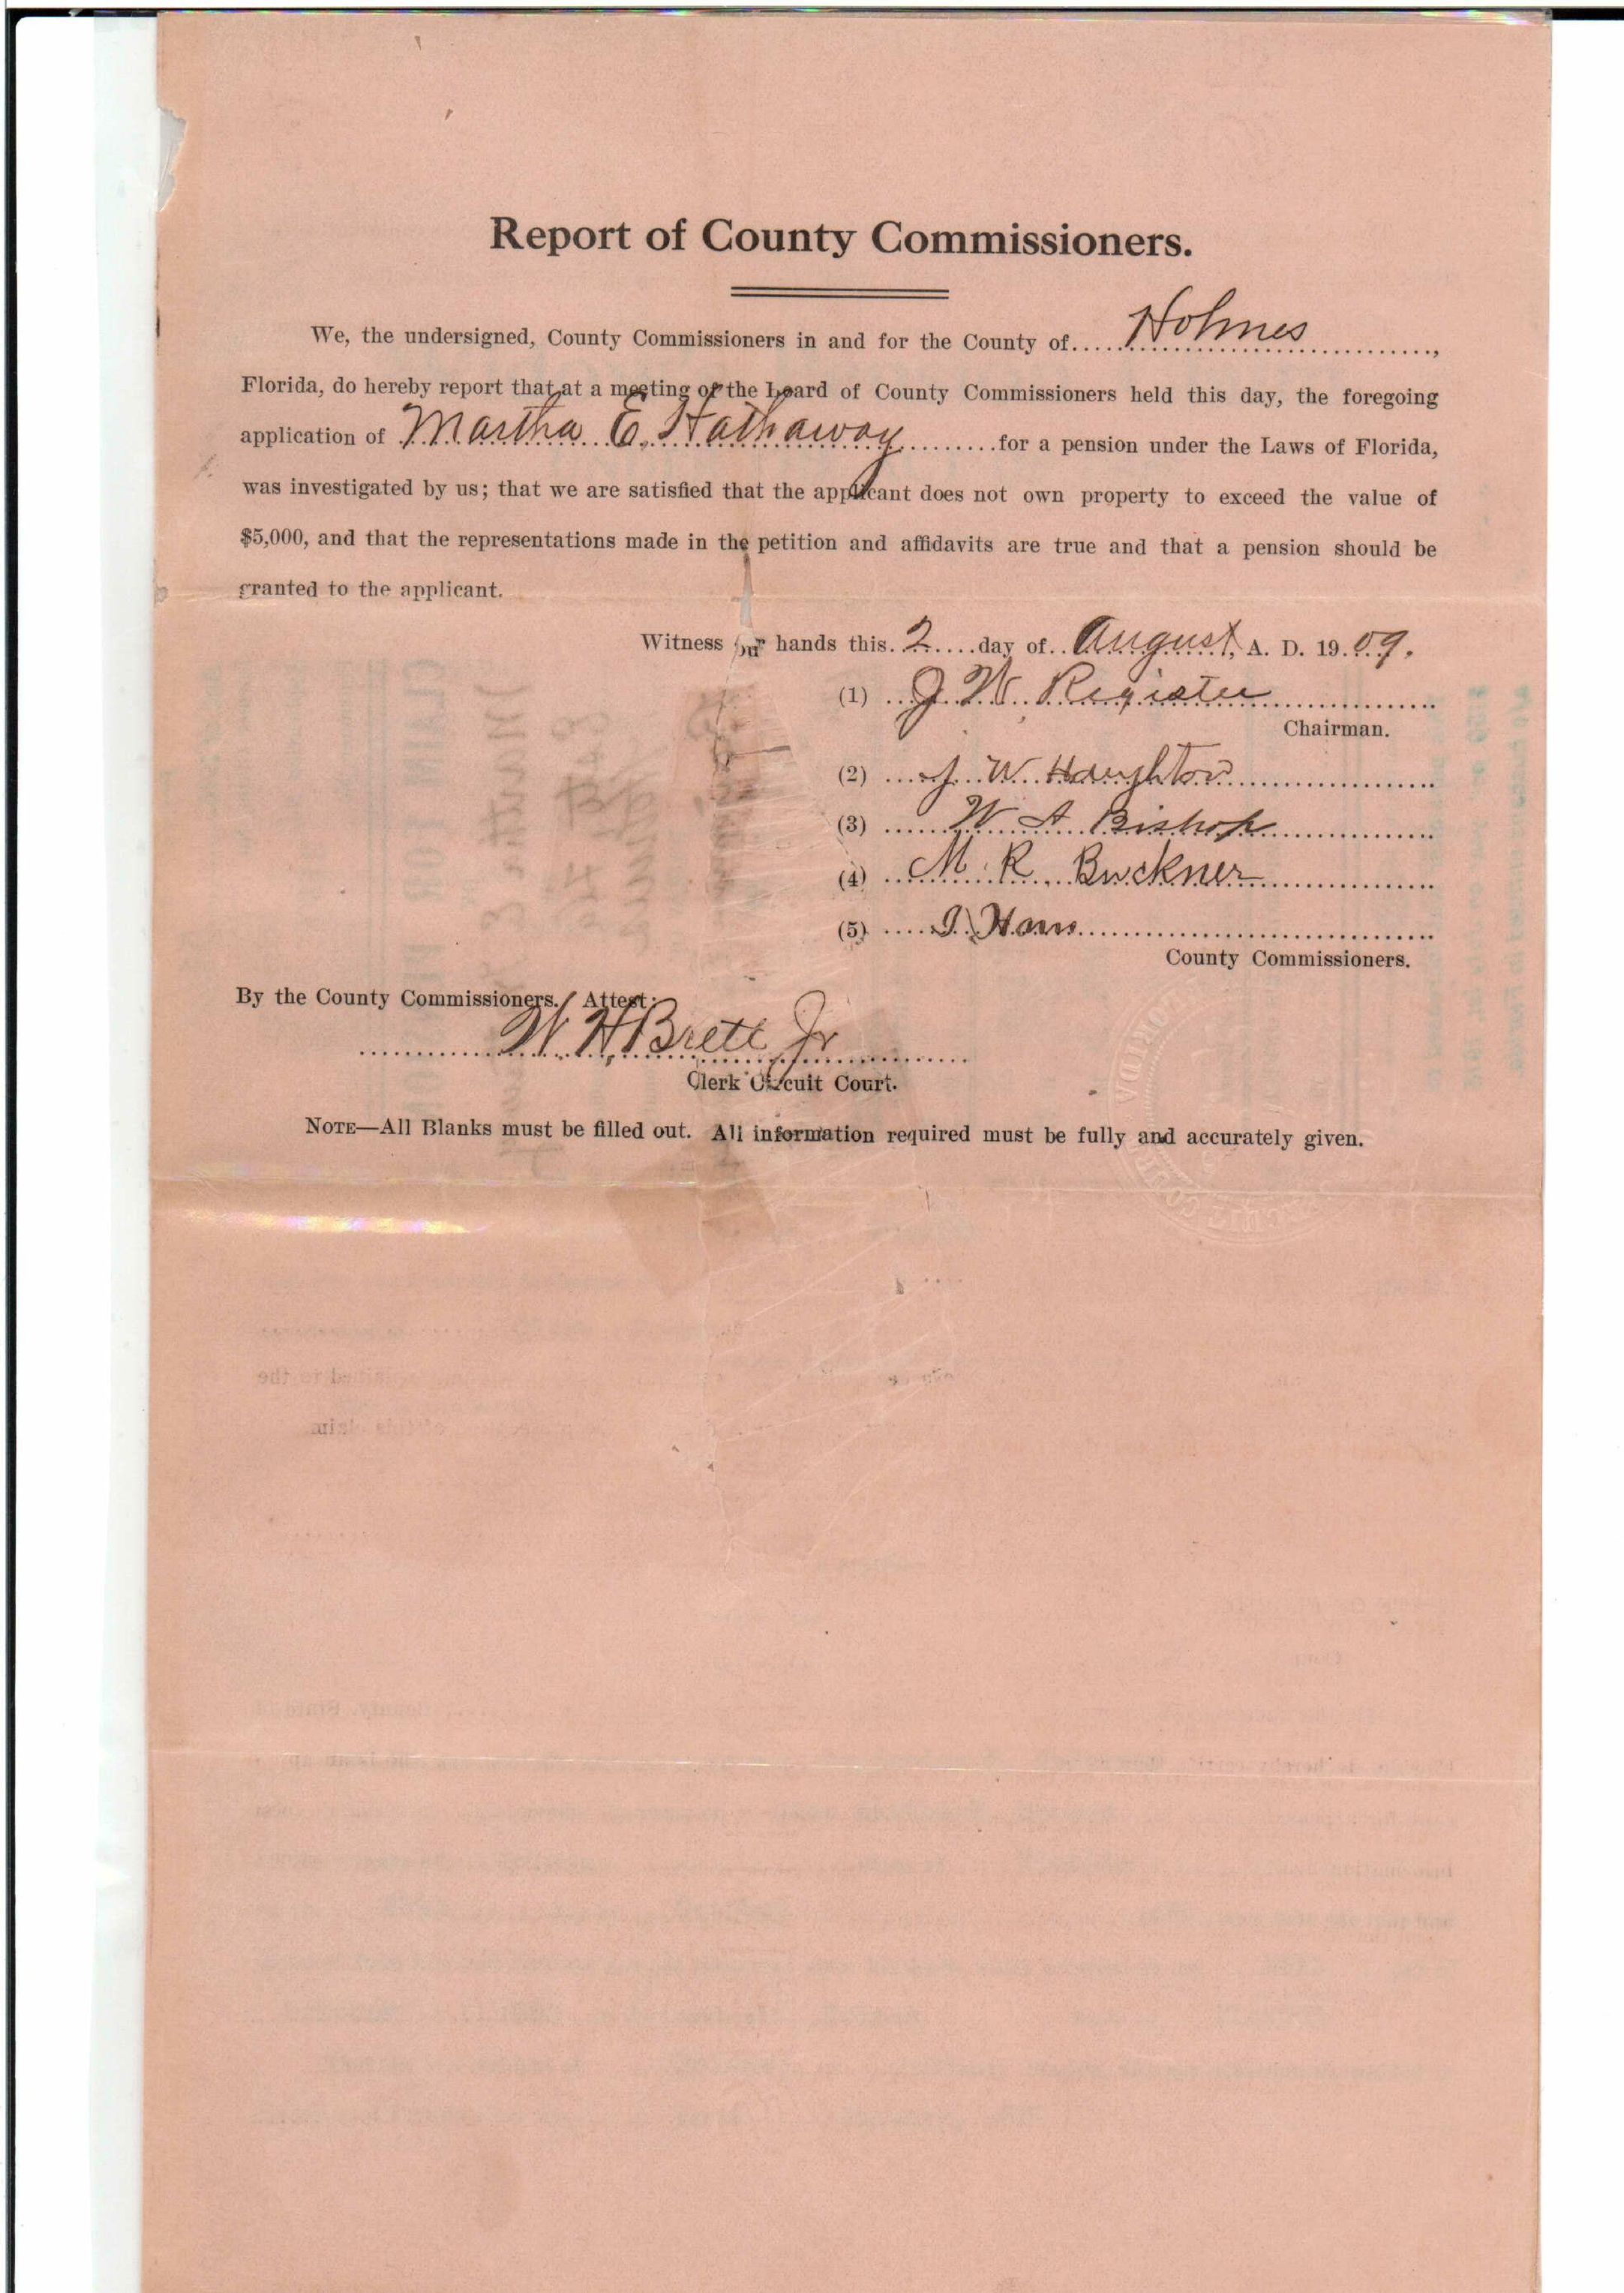 Report of County Commissioners.
We, the undersigned, County Commissioners in and for the County of Holmes,
Florida, do hereby report that at a meeting of the board of County Commissioners held this day, the foregoing
application of Martha E. Hathaway for a pension under the Laws of Florida,
was investigated by us; that we are satisfied that the applicant does not own property to exceed the value of
$5,000, and that the representations made in the petition and affidavits are true and that a pension should be
granted to the applicant.
Witness our hands this 2 day of August, A. D. 1909.
(1) J W Register
Chairman.
(2) J. W. Haughton
(3) W A Bishop
(4) M. R. Buckner
(5)
County Commissioners.
By the County Commissioners. Attest:
W H Brett Jr
Clerk Circuit Court.
NOTE—All Blanks must be filled out. All information required must be fully and accurately given.